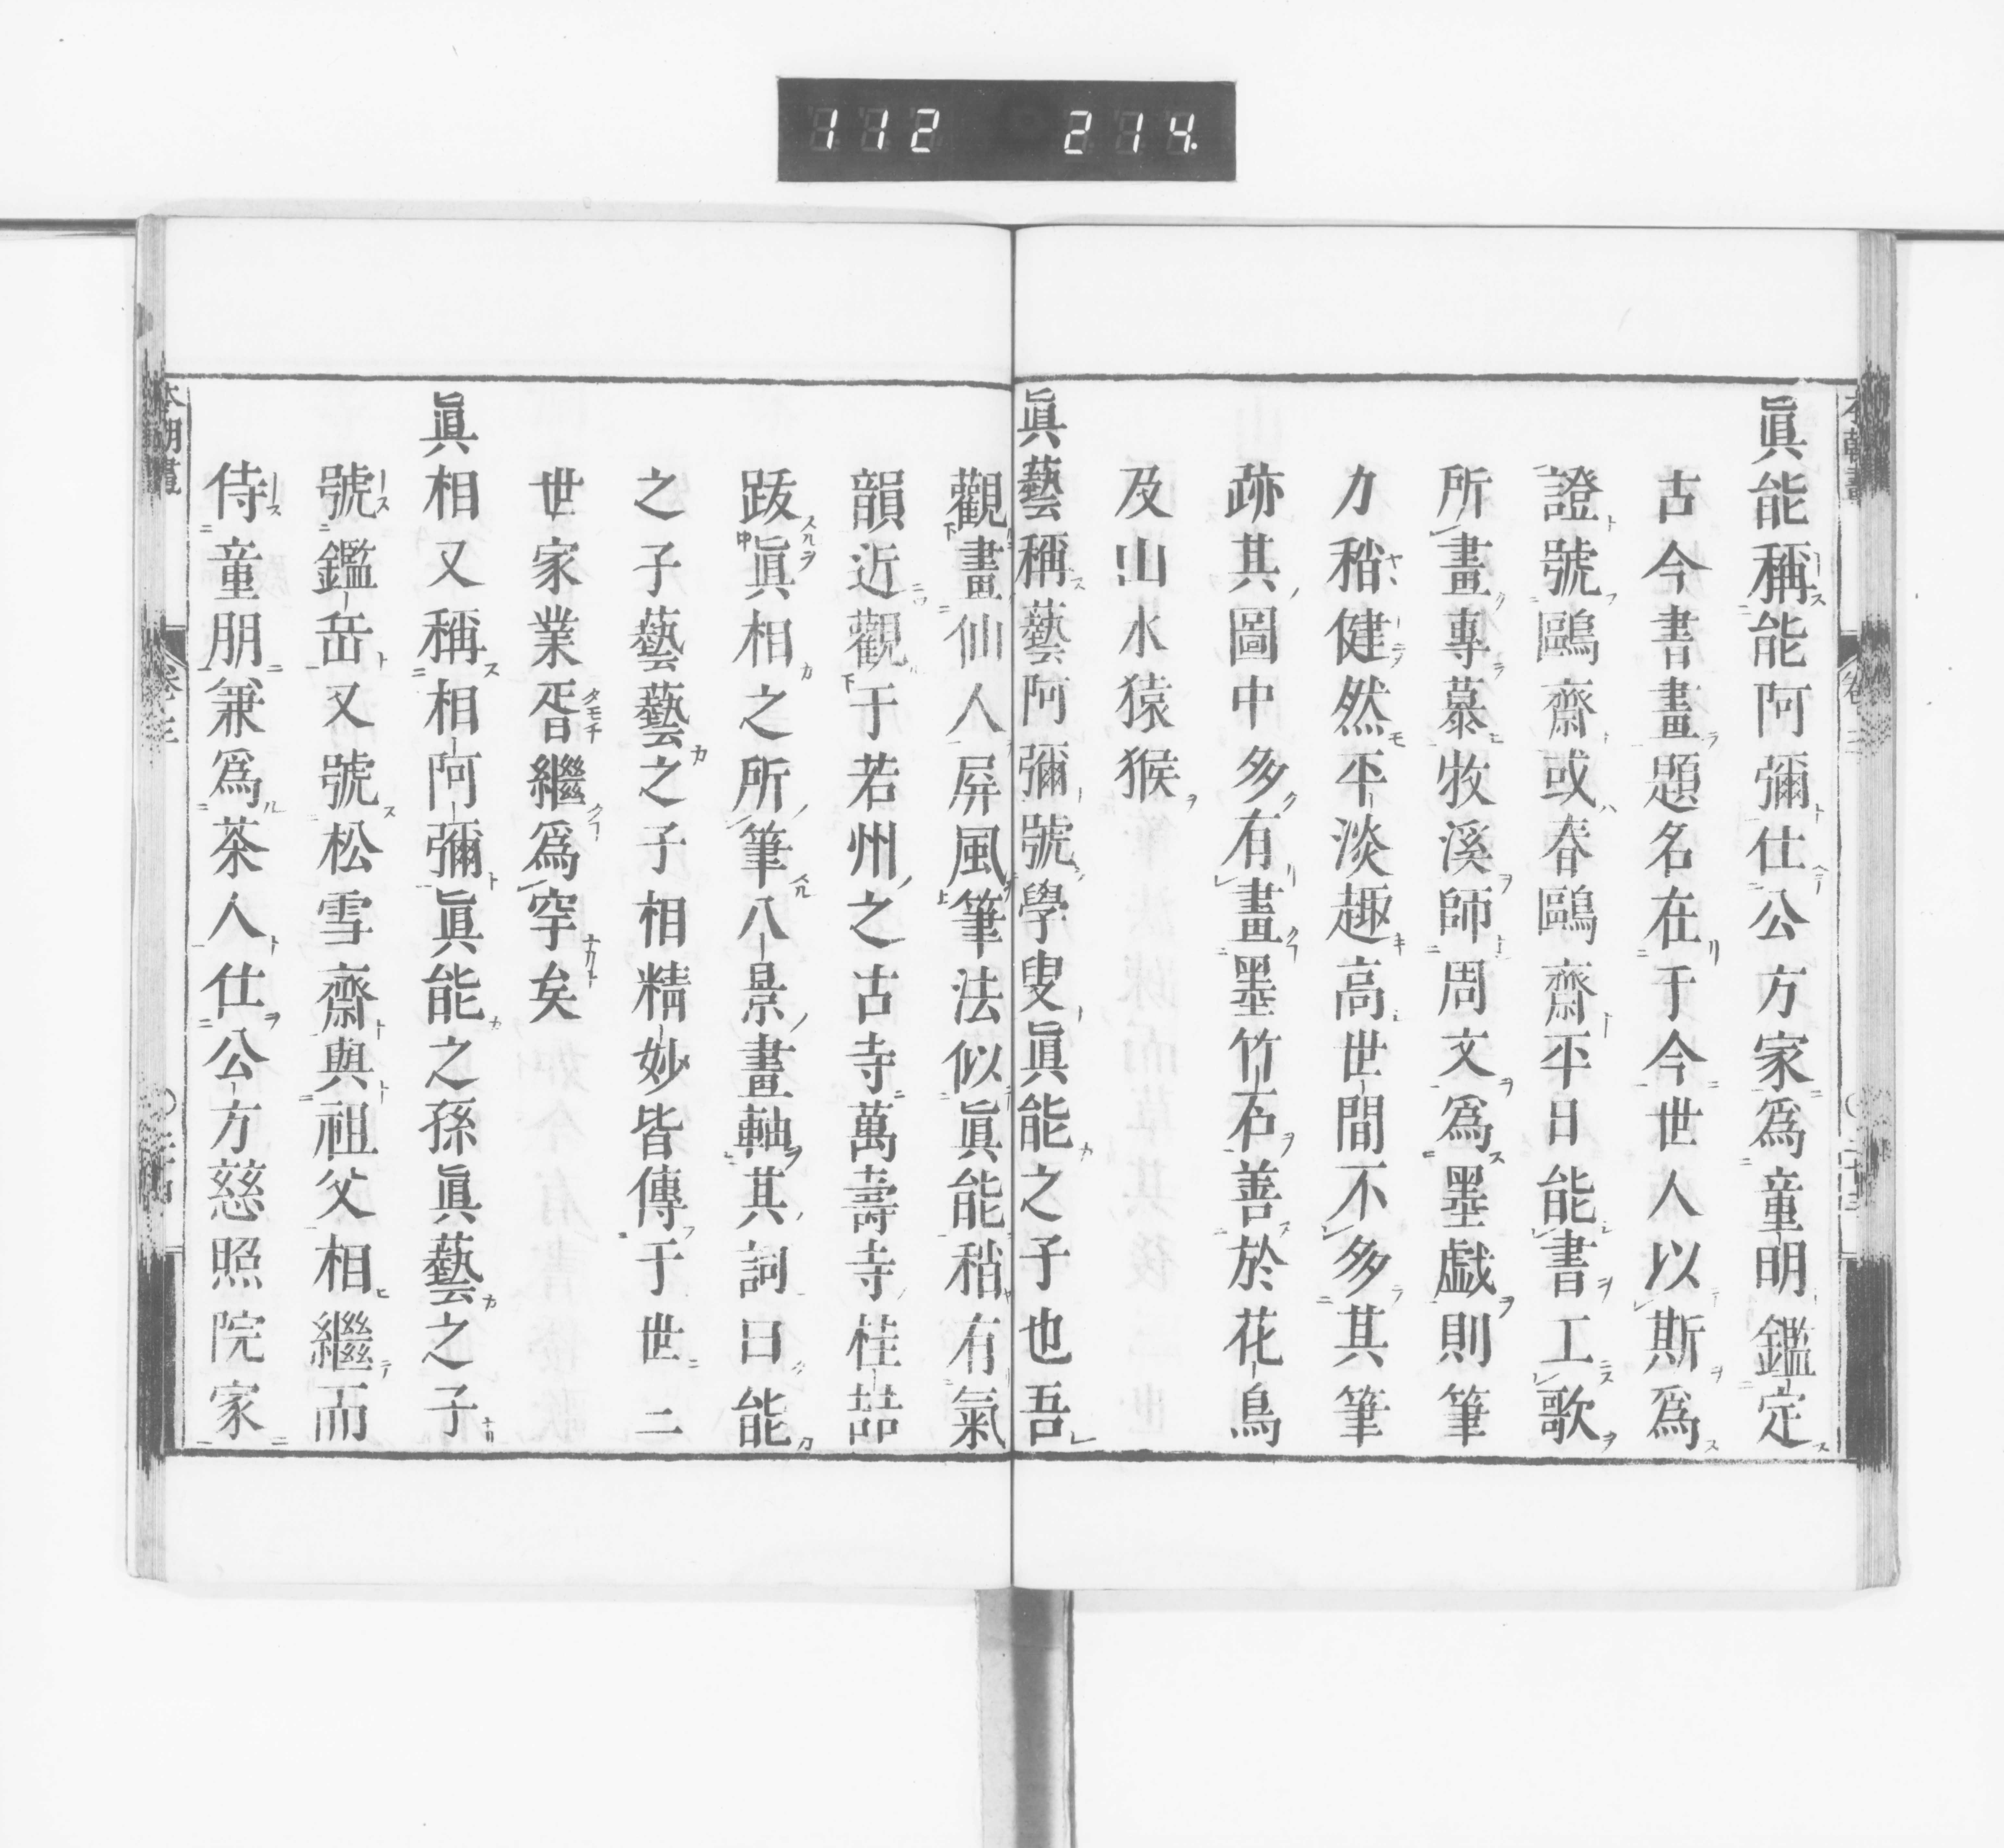 112 214
眞能稱能阿彌仕公方家爲童明鑑定
古今書畫題名在于今世人以斯爲
證號鷗齋或春鷗齋平日能書工歌
所畫專慕牧溪師周文爲墨戯則筆
力稍健然平淡趣高世間不多其筆
跡其圖中多有畫墨竹石善於花鳥
及山水猿猴
眞藝稱藝阿彌號學叟眞能之子也吾
觀畫仙人屏風筆法似眞能稍有氣
韻近觀于若州之古寺萬壽寺桂喆
跋眞相之所筆八景畫軸其詞曰能
之子藝藝之子相精妙皆傳于世二
世家業胥繼爲罕矣
眞相又稱相阿彌眞能之孫眞藝之子
號鑑岳又號松雪齋與祖父相繼而
侍童朋兼爲茶人仕公方慈照院家